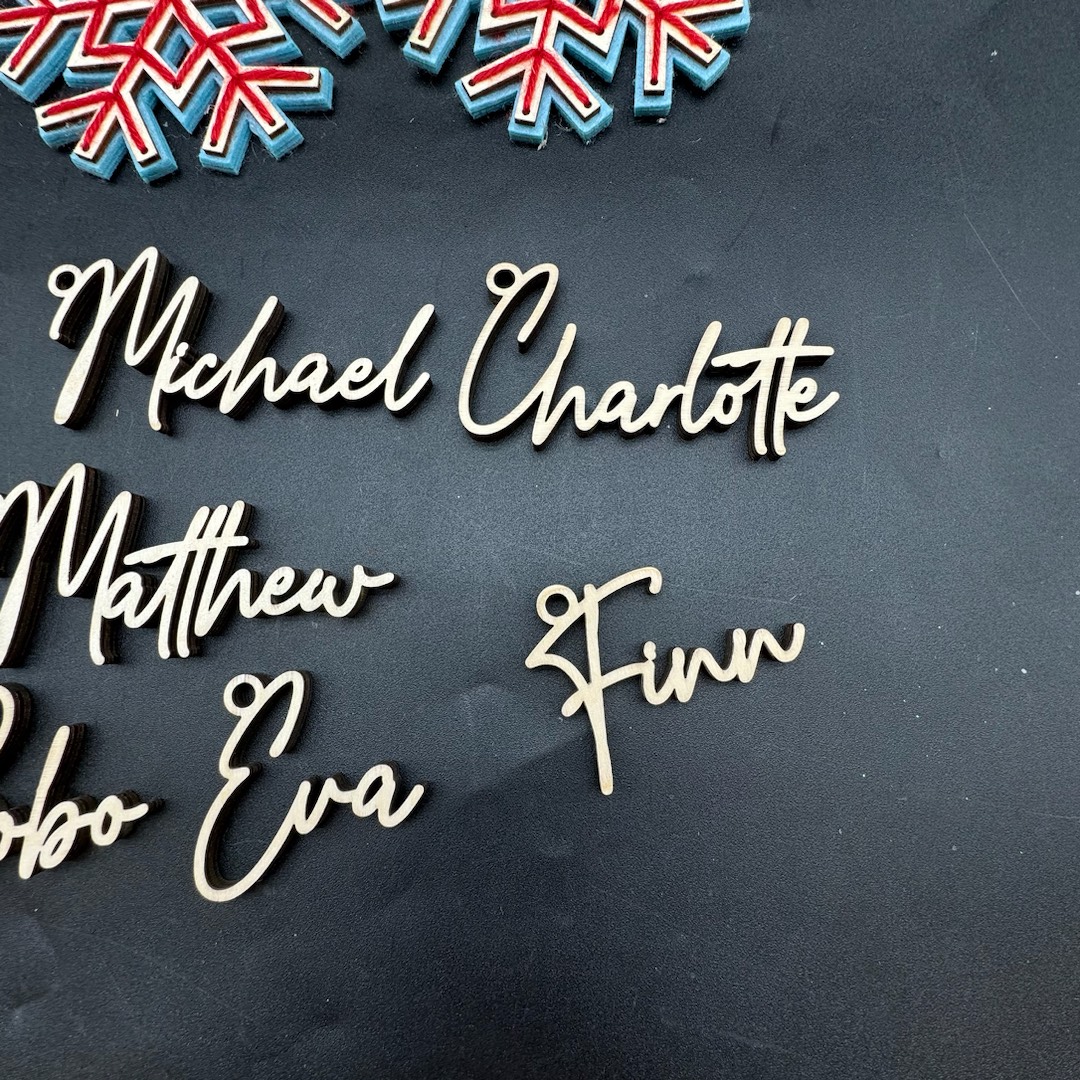 Michael Charlotte
Matthew
Finn
Eva